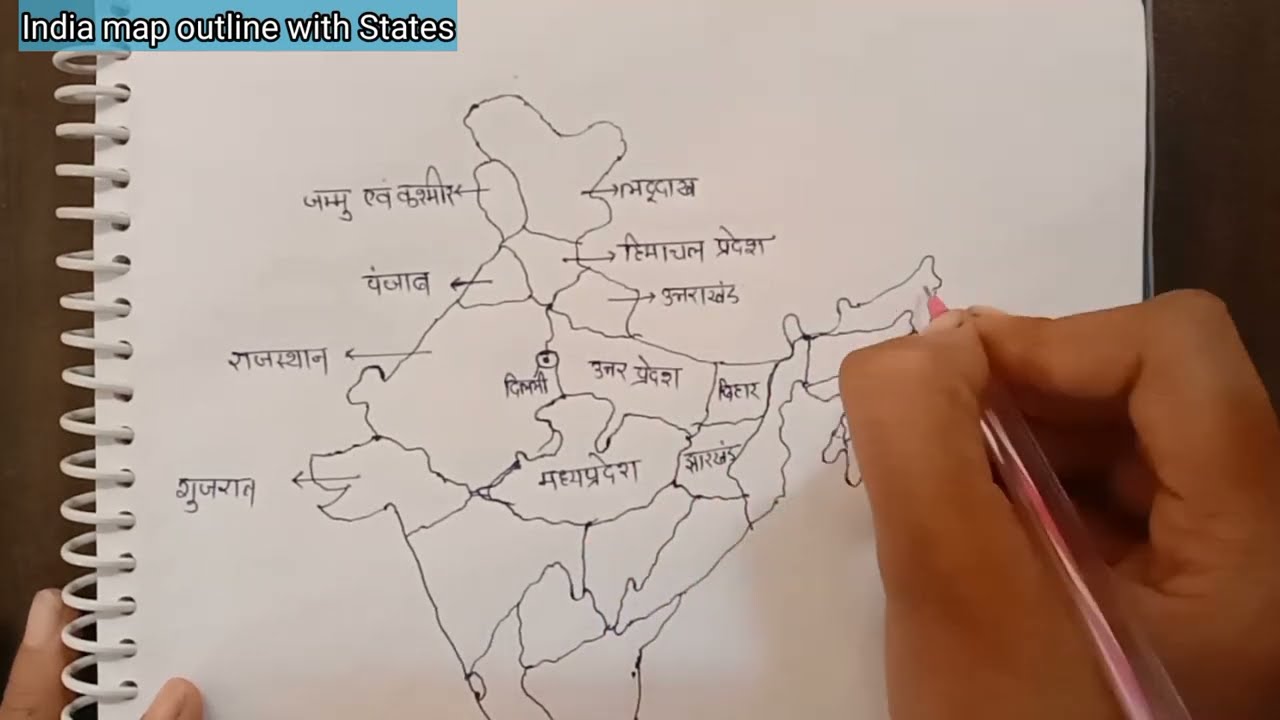 India map outline with States
जम्मु एवं कश्मीर
लद्दाख
हिमाचल प्रदेश
पंजाब
उत्तराखंड
राजस्थान
दिल्ली
उत्तर प्रदेश
बिहार
मध्यप्रदेश
झारखंड
गुजरात